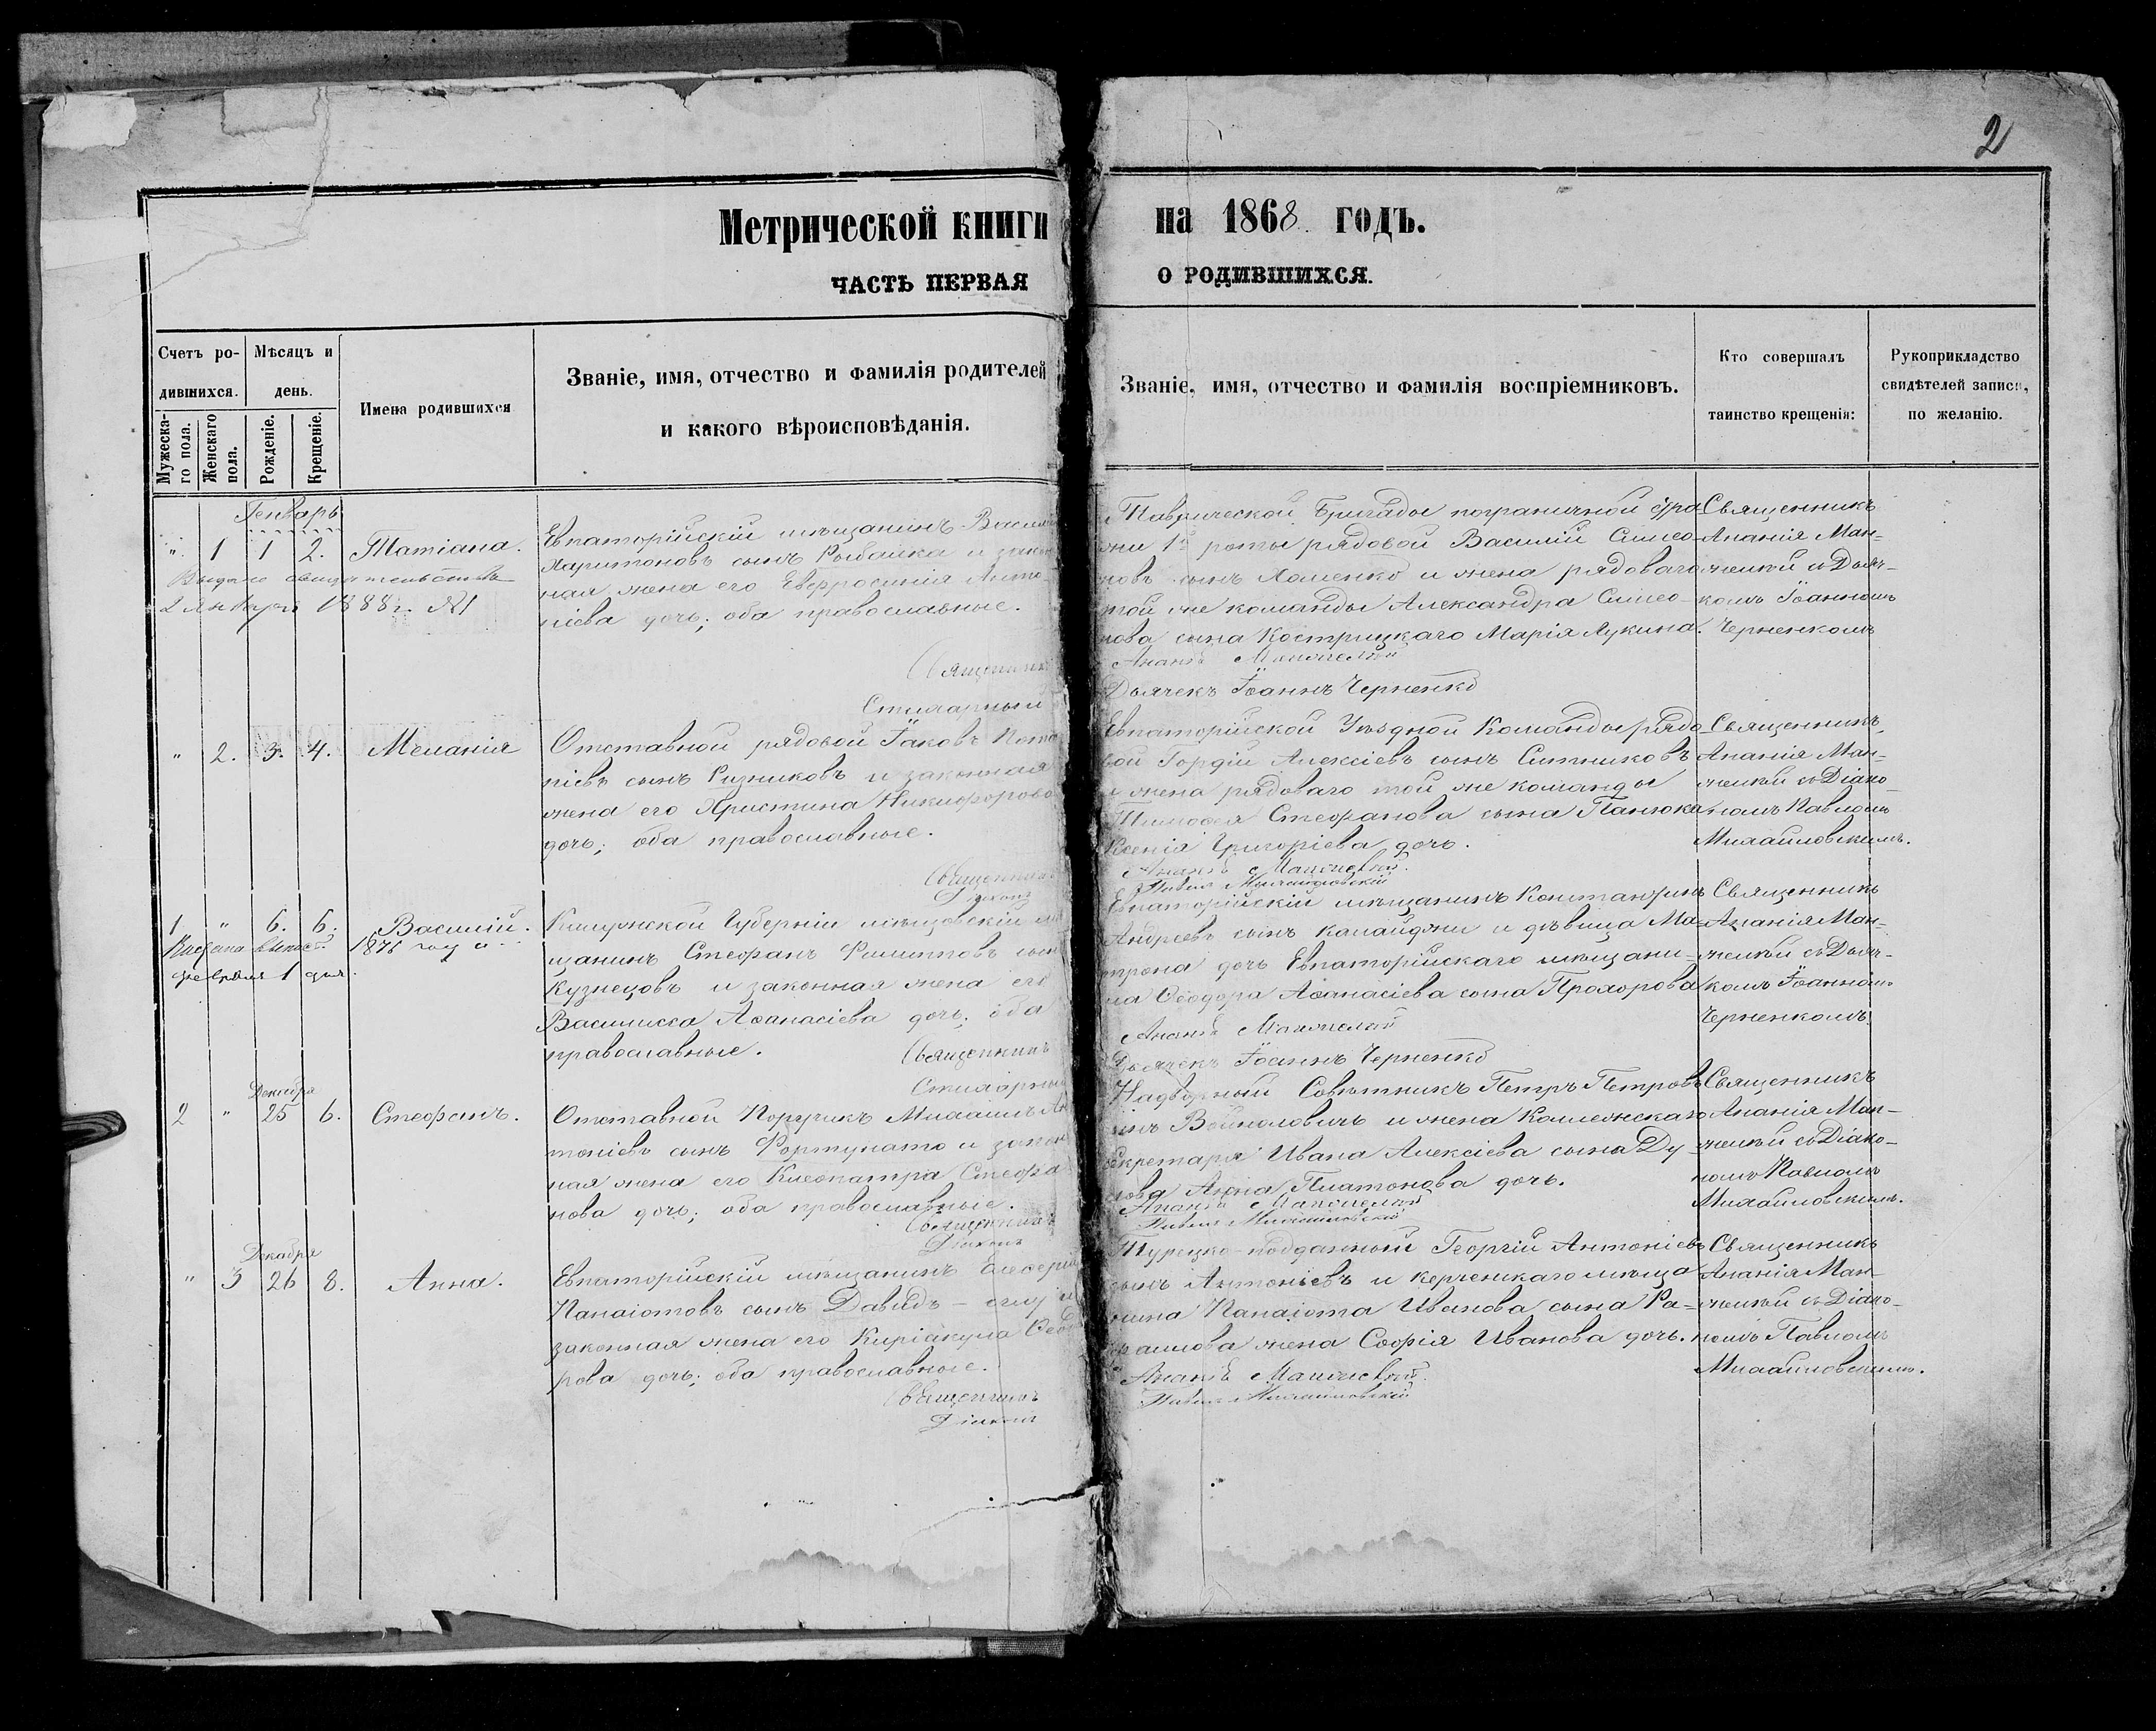 2
Метрической книги на 1868 годъ.
ЧАСТЬ ПЕРВАЯ О РОДИВШИХСЯ.
Счетъ ро-
дившихся.
Мѣсяцъ и
день.
Мужеска-
го пола.
Женскаго
пола.
Рожденіе.
Крещеніе.
Имена родившихся
Званіе, имя, отчество и фамилія родителей
и какого вѣроисповѣданія.
Званіе, имя, отчество и фамилія воспріемниковъ.
Кто совершалъ
таинство крещенія:
Рукоприкладство
свидѣтелей записи,
по желанію.
Генварь
" 1 1 2. Татіана.
Выдано свидетельство
2 января 1888 г. №1
Евпаторійскій мѣщанинъ
Харитоновъ сынъ Рыбалка и
ная жена его Евфросинія Анто-
ніева дочь; оба православные.
Священникъ
Стихарный
Таврической Бригады пограничной стра-
жи 1й роты рядовой Василій Симео-
новъ сынъ Хоменко и жена рядоваго
той же команды Александра Симео-
нова сына Кострицкаго Марія Лукина.
Ананій Манжелей
Дьячекъ Іоаннъ Черненко
Священникъ
Ананія Ман-
желѣй съ Дьяч-
комъ Іоанномъ
Черненкомъ
" 2. 3. 4. Меланія
Отставной рядовой Іаковъ
піевъ сынъ Ризниковъ и законная
жена его Христина Никифорова
дочь; оба православные.
Священникъ
Діаконъ
Евпаторійской Уѣздной Команды рядо-
вой Гордій Алексіевъ сынъ Ситниковъ
и жена рядоваго той же команды
Тимофея Стефанова сына Панюка
Ксенія Григоріева дочь.
Ананій Манжелей.
Павелъ Михайловскій
Священникъ
Ананія Ман-
желѣй съ Діако-
номъ Павломъ
Михайловскимъ.
1 " 6. 6. Василій.
1876 году
февраля 1 дня.
Калужской Губерніи мѣщовскій мѣ
щанинъ Стефанъ Филипповъ сынъ
Кузнецовъ и законная жена его
Василисса Аѳанасіева дочь; оба
православные.
Священникъ
Стихарный
Евпаторійскій мѣщанинъ Константинъ
Андреевъ сынъ Калайджи и дѣвица Ма-
трона дочь Евпаторійскаго мѣщани-
на Ѳеодора Аѳанасіева сына Прохорова
Ананій Манжелей
Дьячекъ Іоаннъ Черненко
Священникъ
Ананія Ман-
желѣй съ Дьяч-
комъ Іоанномъ
Черненкомъ.
Декабря
2 " 25 6. Стефанъ.
Отставной Поручикъ Михаилъ Ан
тоніевъ сынъ Фортунато и закон
ная жена его Клеопатра Стефа-
нова дочь; оба православные.
Священникъ
Діаконъ
Надворный Совѣтникъ Петръ Петровъ
сынъ Войналовичъ и жена Коллежскаго
секретаря Ивана Алексіева сына Ду-
Анна Платонова дочь.
Ананій Манжелей
Павелъ Михайловскій
Священникъ
Ананія Ман-
желѣй съ Діако-
номъ Павломъ
Михайловскимъ.
Декабря
" 3 26 8. Анна.
Евпаторійскій мѣщанинъ
Панаіотовъ сынъ Давидъ - и
законная жена его Киріакула Ѳеодо
рова дочь; оба православные.
Священникъ
Діаконъ
Турецко-подданный Георгій Антоніевъ
сынъ Антоніевъ и Керченскаго мѣща-
нина Панаіота Иванова сына Ра-
жена Софія Иванова дочь.
Ананій Манжелей.
Павелъ Михайловскій
Священникъ
Ананія Ман-
желѣй съ Діако-
номъ Павломъ
Михайловскимъ.